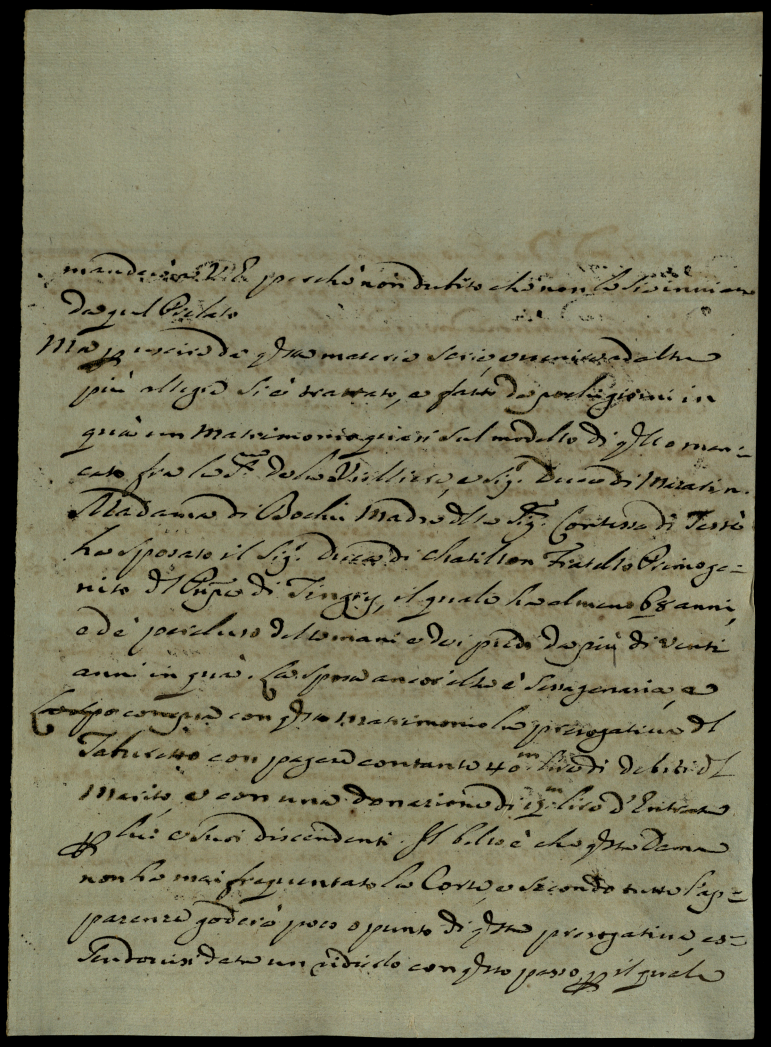 mandar à V.E. perche non dubito che non le sia inviata
da quel Prelato
Ma p uscire da qsta materia seria, e venire ad altra
più allegra si è trattato, e fatto da pochi giorni in
quà un Matrimonio quasi sul modello di qllo man=
cato fra la F. de la Vrilliere, e Sigr. Duca di Mazarin.
Madama di Bochu Madre dlla Sigr. Contessa di Tessè
ha sposato il Sigr. Duca di Chatillon Fratello Primoge=
nito dl Pnpe di Tingry, il quale ha almeno 68 anni,
ed è paraluso delle mani e dei piedi da più di venti
anni in quà. La sposa ancor essa è sessagenaria, e
compra con qsto matrimonio la prerogativa dl
Taburetto con pagare contante 40m lire di debiti dl
Marito, e con una donazione di m lire d'Entrata
p lui e suoi discendenti. Il bello è che qsta Dama
non ha mai frequentato la Corte, e secondo tutte l'ap=
parenze goderà poco o punto di qsta prerogativa, es=
sendosi data un ridicolo con qsto passo, p il quale